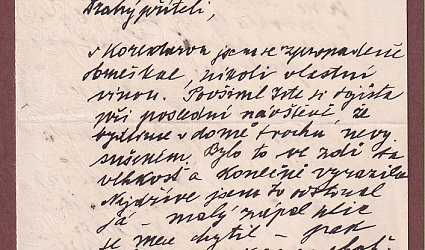 Drahý příteli,
s Korekturou jsem se zpropadeně
omeškal, nikoli vlastní
vinou. Povšiml jste si zajista
při poslední návštěvě, že
bydlíme v domě trochu nevy
sušeném. Bylo to ve zdi ta
vlhkost a konečně vyrazila
Nejdříve jsem to odstonal
já – malý zápal plic
se mne chytil – pak